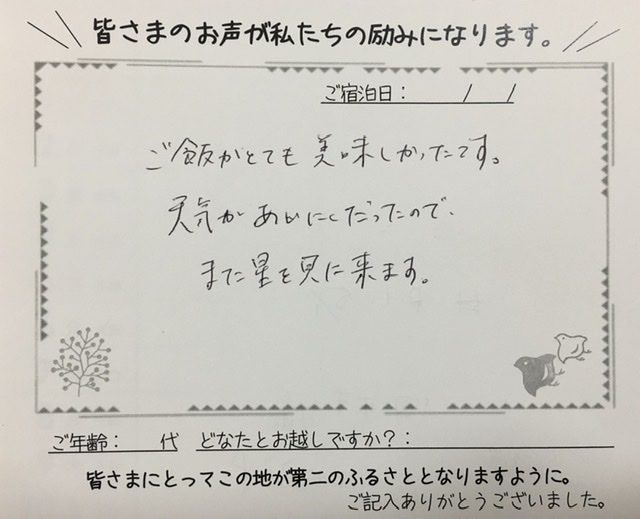 皆さまのお声が私たちの励みになります。
ご宿泊日： / /
ご飯がとても美味しかったです。
天気があいにくだったので、
また星を見に来ます。
ご年齢： 代 どなたとお越しですか？：
皆さまにとってこの地が第二のふるさととなりますように。
ご記入ありがとうございました。